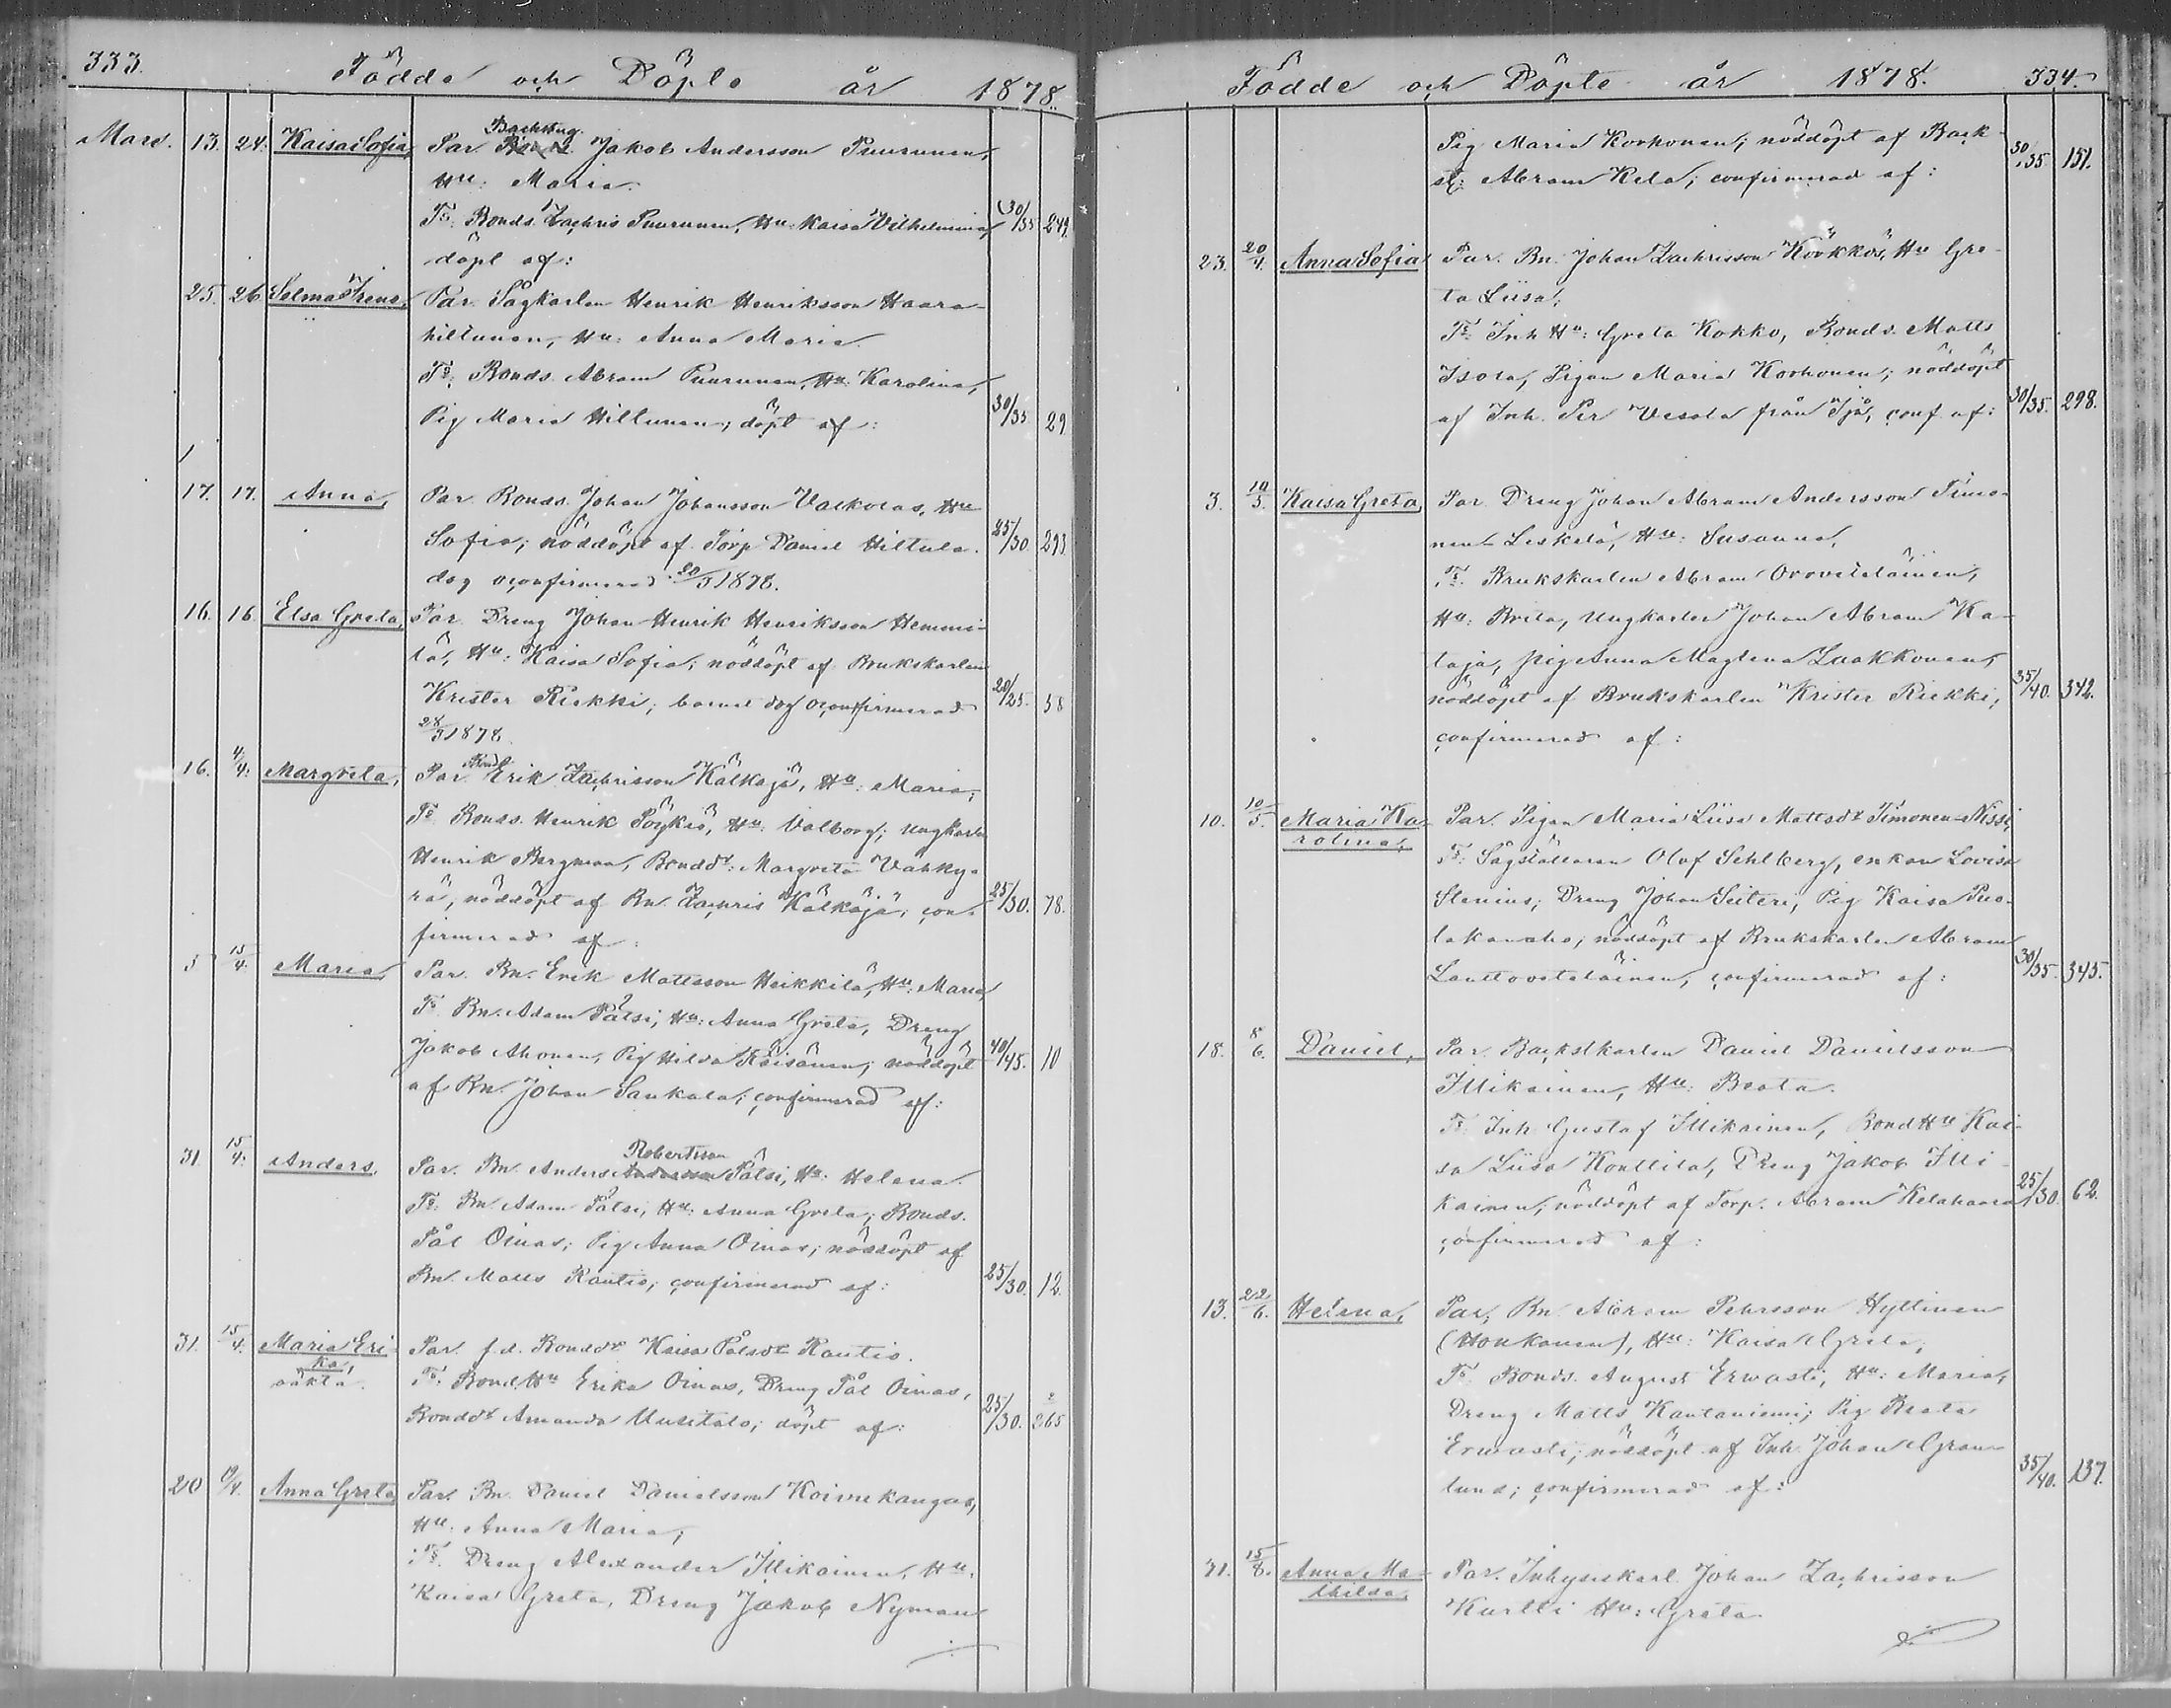 333.
Födde och Döpte år 1878.
Mars. 13. 24. Kaisa Sofia, Par. Backstug. Jakob Andersson Puurunen,
Hu: Maria.
Fs. Bonds. Zachris Puurunen, Hu: Kaisa Vilhelmina, 30/35 249.
döpt af:
25. 26 Selma Irene, Par. Sågkarlen Henrik Henriksson Haara-
hiltunen, Hu: Anna Maria.
Fs. Bonds. Abram Puurunen, Hu: Karolina,
Pig Maria Hiltunen; döpt af: 30/35 29
17. 17. Anna, Par. Bonds. Johan Johansson Valkolas, Hu
Sofia; nöddöpt af Torp. Daniel Hiltula. 25/30 293
dog oconfirmerad 20/3 1878.
16. 16. Elsa Greta, Par. Dreng Johan Henrik Henriksson Hemmi-
lä, Hu: Kaisa Sofia; nöddöpt af Brukskarlen
Krister Riekki; barnet dog oconfirmerad 20/25. 58
28/3 1878.
16. 4/4. Margreta, Par. Bond Erik Zachrisson Kälkäjä, Hu: Maria;
Fs. Bonds. Henrik Pöykiö, Hu: Valborg; ungkarlen
Henrik Bergman, Bonddr: Margreta Vähky-
rä; nöddöpt af Bn. Zachris Kälkäjä; con- 25/30. 78.
firmerad af:
5 15/4. Maria Par. Bn. Erik Mattsson Heikkilä, Hu: Maria,
Fs. Bn. Adam Pätsi, Hu: Anna Greta, Dreng
Jakob Ahonen, Pig Hilda Räisänen; nöddöpt 40/45. 10
af Bn. Johan Sankala; confirmerad af:
31 15/4. Anders Par. Bn. Anders Robertsson Pätsi, Hu: Helena.
Fs. Bn. Adam Pätsi, Hu: Anna Greta; Bonds.
Pål Oinas; Pig Anna Oinas; nöddöpt af
Bn. Matts Rautio; confirmerad af: 25/30. 12.
31. 15/4. Maria Eri- Par. f.d. Bonddr Kaisa Pålsdr Rautio.
ka,
oäkta. Fs. Bond Hu Erika Oinas, Dreng Pål Oinas,
Bonddr Amanda Uusitalo; döpt af: 25/30. 265
20 Anna Greta Par. Bn. Daniel Danielsson Koivukangas,
Hu. Anna Maria;
Fs. Dreng Alexander Illikainen, Hu.
Kaisa Greta, Dreng Jakob Nyman
Födde och Döpte år 1878. 334.
Pig Maria Korhonen; nöddöpt af Back-
st: Abram Kela; confirmerad af: 30/35. 151.
23. 20/4. Anna Sofia Par. Bn. Johan Zachrisson Kovkkos, Hu Gre-
ta Liisa;
Fs. Inh Hu: Greta Kokko, Bonds. Matts
Isola, Pigan Maria Korhonen; nöddöpt
af Inh. Per Vesala från Ijå, conf. af: 30/35. 298.
3. 10/5. Kaisa Greta, Par. Dreng Johan Abram Andersson Timo-
nen Leskelä, Hu: Susanna,
Fs. Brukskarlen Abram
Hu: Brita, ungkarlen Johan Abram Ka-
taja, pig Anna Magdena Laakkonen,
nöddöpt af Brukskarlen Krister Riekki; 35/40. 342.
confirmerad af:
10. 10/5. Maria Ka- Par. Pigan Maria Liisa Mattsdr Timonen-Nissi,
rolina, Fs. Sågställaren Olof Sehlberg, enkan Lovisa
Stenius; Dreng Johan Seiteri, Pig Kaisa Puo-
lakanaho; nöddöpt af Brukskarlen Abram
confirmerad af: 30/35. 345.
18. 8/6. Daniel, Par. Backstkarlen Daniel Danielsson
Illikainen, Hu: Beata.
Fs. Inh Gustaf Illikainen, Bond Hu Kai-
sa Liisa Konttila, Dreng Jakob Illi-
kainen; nöddöpt af Torp. Abram Kelahaara 25/30. 62.
confirmerad af:
13. 22/6. Helena, Par, Bn. Abram Pehrsson Hyttinen
(Honkanen), Hu: Kaisa Greta,
Fs. Bonds. August Erwasti, Hu: Maria,
Dreng Matts Kantaniemi; Pig Beata
Erwasti; nöddöpt af Inh. Johan Gran-
lund; confirmerad af: 35/40. 137.
31. 15/8. Anna Ma- Par. Inhysiskarl Johan Zachrisson
thilda, Kurtti Hu: Greta